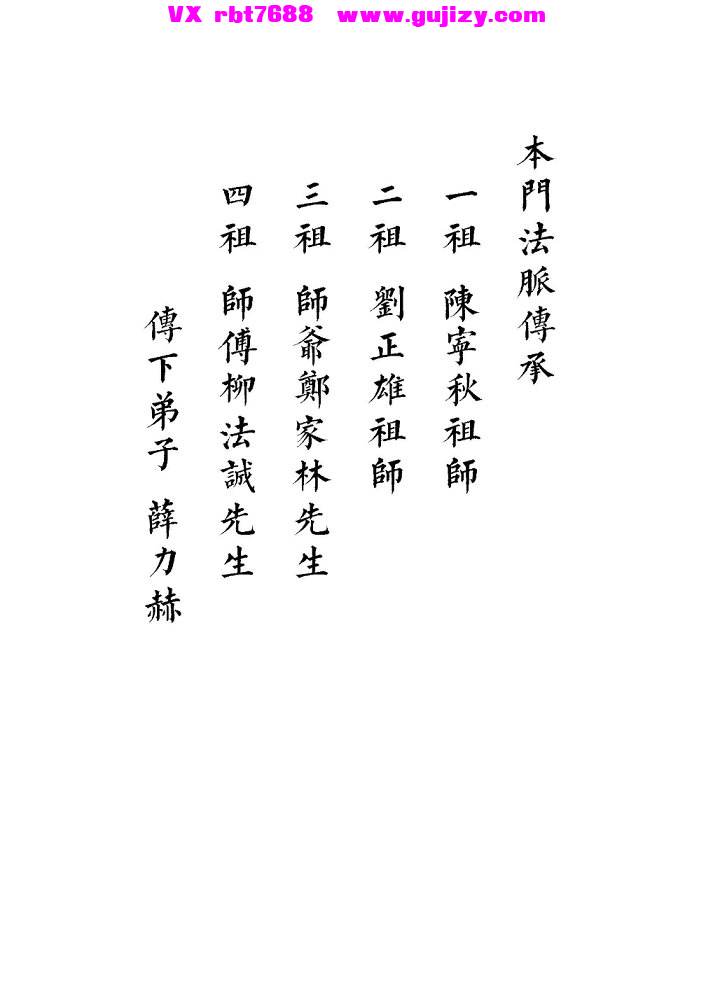 VX rbt7688 www.gujizy.com
本門法脈傳承
一祖 陳寧秋祖師
二祖 劉正雄祖師
三祖 師爺鄭家林先生
四祖 師傅柳法誠先生
傳下弟子 薛力赫